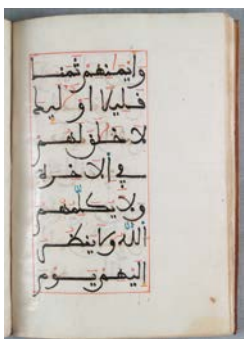 وأيمنهم ثمنا
قليلا أو ليك
لا خلق لهم
في الاخرة
ولا يكلمهم
الله ولا ينظر
اليهم يوم